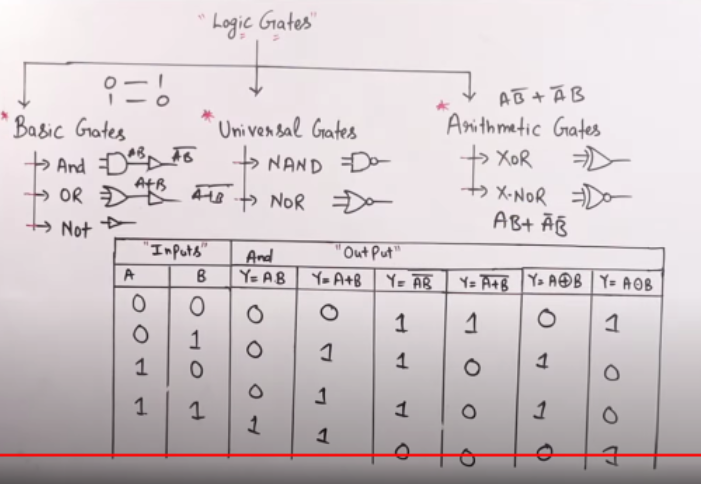 "Logic Gates"
0 — 1
1 — 0
AB̅ + A̅B
* Basic Gates
→ And AB A̅B̅
→ OR A+B A̅+̅B̅
→ Not
* Universal Gates
→ NAND
→ NOR
* Arithmetic Gates
→ XOR
→ X-NOR
AB + A̅B̅
"Inputs" And "Output"
A B Y=AB Y=A+B Y=A̅B̅ Y=A̅+̅B̅ Y=A⊕B Y=A⊙B
0 0 0 0 1 1 0 1
0 1 0 1 1 0 1 0
1 0 0 1 1 0 1 0
1 1 1 1 0 0 0 1